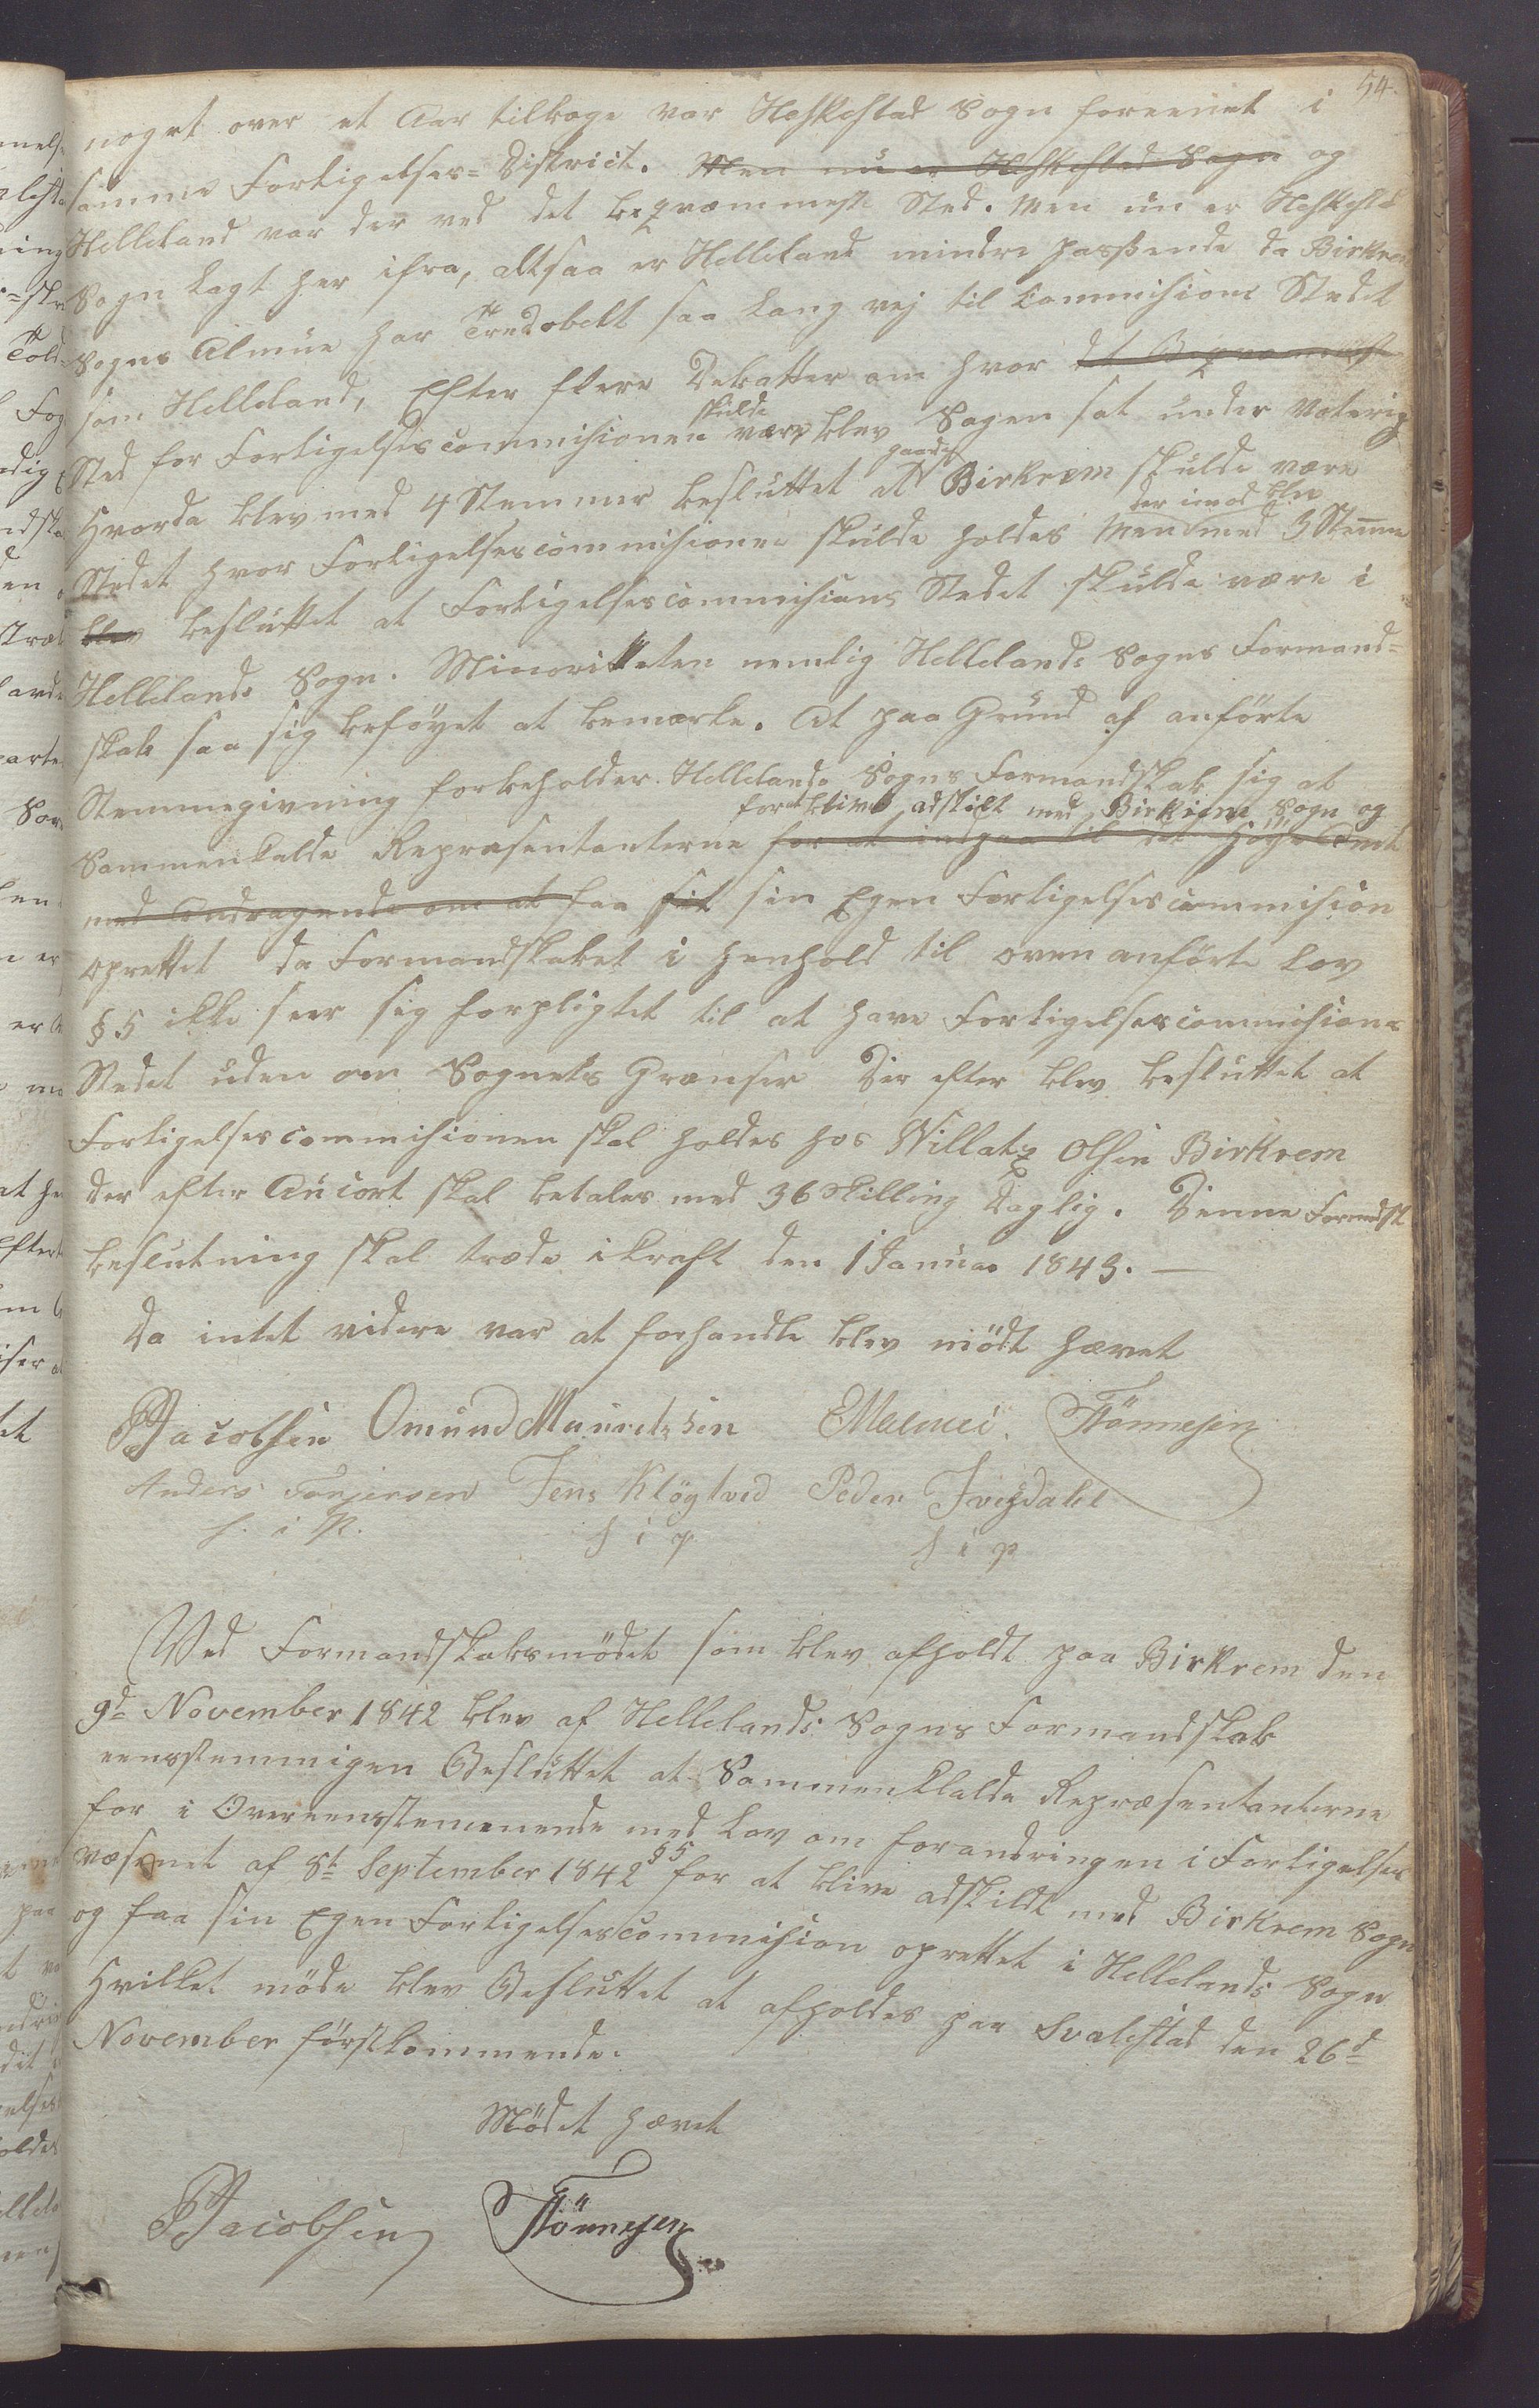 54.
noget over et Aar tilbage var Heskestad Sogn foreenet i
samme Forligelses-District. Men nu er Heskestad Sogn og
Helleland var der ved det beqvæmmeste Sted. Men nu er Heskestad
Sogn lagt her ifra, altsaa er Helleland mindre passende da Birkrem
Sogns Almue har Tredobelt saa lang vej til Commisions Stedet
som Helleland, Efter flere Debatter om hvor det Beqvæmmeste
Sted for Forligelsescommisionen skulde være blev Sagen sat under Votering
Hvorda blev med 4 Stemmer besluttet at gaarden Birkrem skulde være
Stedet hvor Forligelsescommisionen skulde holdes Men der imod blev med 3 Stemme
blev besluttet at Forligelsescommisions Stedet skulde være i
Hellelands Sogn. Minoriteten nemlig Hellelands Sogns Formand-
skab saa sig beføyet at bemærke. At paa Grund af anførte
Stemmegivning forbeholder Hellelands Sogns Formandskab sig at
for at blive adskilt med Birkrem Sogn og
Sammenkalde Repræsentanterne for at indgaa til det Høye Amt
med Andragende om at faa sit sin Egen Forligelsescommision
oprettet da Formandskabet i henhold til oven anførte Lov
§ 5 ikke seer sig forpligtet til at have Forligelsescommisions
Stedet uden om Sognets Grænser Der efter blev besluttet at
Forligelsescommisionen skal holdes hos Willatz Olsen Birkrem
der efter Accort skal betales med 36 Skilling Daglig. Denne Formdsk
beslutning skal træde i kraft den 1 Januar 1843. —
Da intet videre var at forhandle blev mødt hævet
PJacobsen Omund Mauritzsen Tönnesen
Anders Torgersen Jens Kløgtved Peder Ivesdalel
h. i P. h i p h i p
Ved Formandskabsmødet som blev afholdt paa Birkrem den
9d November 1842 blev af Hellelands Sogns Formandskab
eenstemmigen Besluttet at Sammenkalde Repræsentanterne
for i Overeenstemmende med Lov om forandringen i Forligelses
væsenet af 8t September 1842 § 5 for at blive adskildt med Birkrem Sogn
og faa sin Egen Forligelsescommision oprettet i Hellelands Sogn
Hvilket møde blev Besluttet at afholdes paa Svalestad den 26d
November førstkommende.
Mødet hævet
PJacobsen Tönnesen